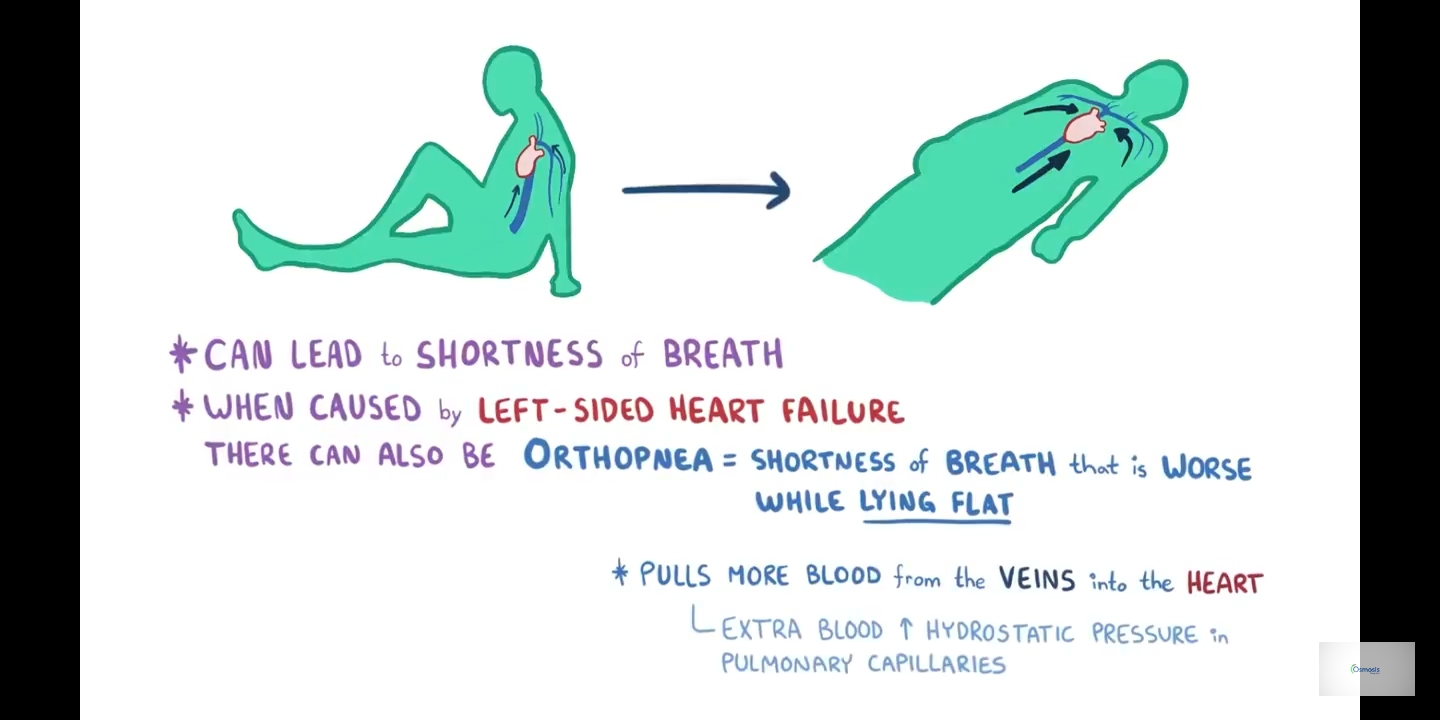 * CAN LEAD to SHORTNESS of BREATH
* WHEN CAUSED by LEFT-SIDED HEART FAILURE
THERE CAN ALSO BE ORTHOPNEA = SHORTNESS of BREATH that is WORSE
WHILE LYING FLAT
* PULLS MORE BLOOD from the VEINS into the HEART
EXTRA BLOOD ↑ HYDROSTATIC PRESSURE in
PULMONARY CAPILLARIES
Osmosis